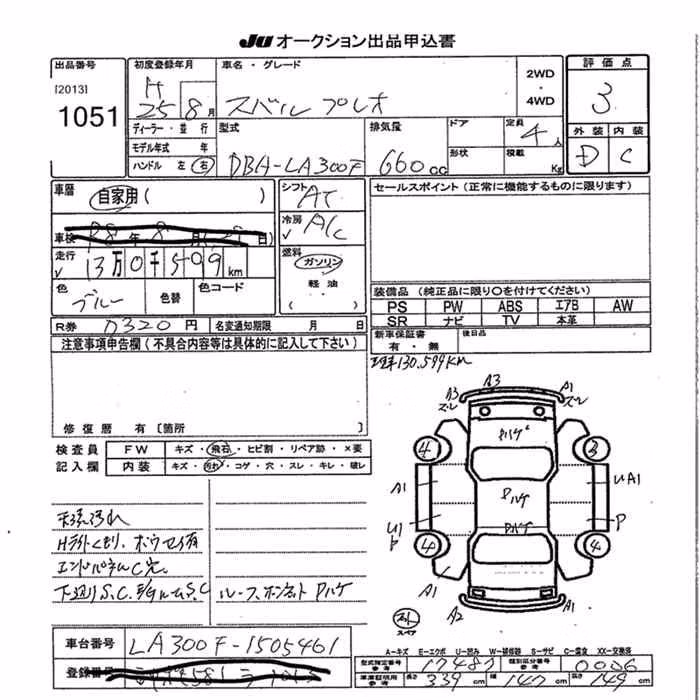 JU オークション出品申込書
出品番号
[2013]
1051
初度登録年月
H
25 8月
車名・グレード
スバル プレオ
2WD
・
4WD
評価点
3
外装 内装
D C
ディーラー・並行
モデル年式 年
ハンドル 左 右
型式
DBA-LA300F
排気量
660cc
ドア
形状
定員
4人
積載
Kg
車歴
自家用 ( )
車検 年 月 ( 日)
走行
√
13万0千599km
色
ブルー
色替
色コード
シフト
AT
冷房
√
A/C
燃料
ガソリン
軽油
( )
セールスポイント (正常に機能するものに限ります)
装備品 (純正品に限り○を付けてください)
PS PW ABS エアB AW
SR ナビ TV 本革
新車保証書
有・無
後日品
R券 円 名変通知期限 月 日
注意事項申告欄 (不具合内容等は具体的に記入して下さい)
130,599km
修復歴 有 [箇所 ]
検査員
記入欄
FW キズ・飛石・ヒビ割・リペア跡・×要
内装 キズ・汚れ・コゲ・穴・スレ・キレ・破レ
天張汚れ
Hライトくもり、ボウセイ有
エンドパネルC穴
ルーフ、ボンネットPハゲ
A3 A3 A1
ズレ ズレ
Pハゲ
4 3
A1 UA1
Pハゲ
U1 P
P
Pハゲ
4 4
A1 A1
A2 A1
スペア
A-キズ E-エクボ U-凹み W-補修跡 S-サビ C-腐食 XX-交換済
車台番号
LA300F-1505461
登録番号
型式指定番号
参考
17487
類別区分番号
参考
0006
車庫証明用
参考
長さ 339cm 幅 147cm 高さ 149cm